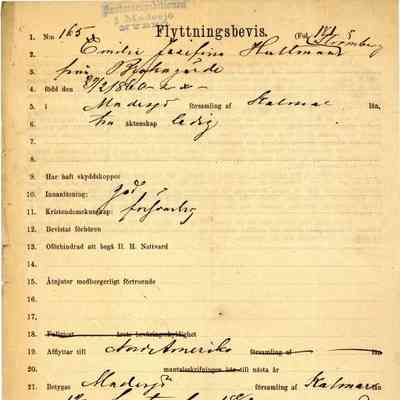 Pastorsexpeditionen
i Madesjö
1. N:o 165 Flyttningsbevis. (Fol. 125
2. Emilia Josefina Hultman Strömberg
3. från Brotorgärde
4. född den 20/2 1860
5. i Madesjö församling af Kalmar län,
6. äktenskap ledig
7.
8.
9. Har haft skyddskoppor
10. Innanläsning: god
11. Kristendomskunskap: försvarlig
12. Bevistat förhören
13. Oförhindrad att begå H. H. Nattvard
14.
15. Åtnjuter medborgerligt förtroende
16.
17.
18. Fullgjort årets beväringsskyldighet
19. Afflyttar till Nord Amerika församling af län
20. mantalsskrifningen här till nästa år
21. Betygas Madesjö församling af Kalmar län